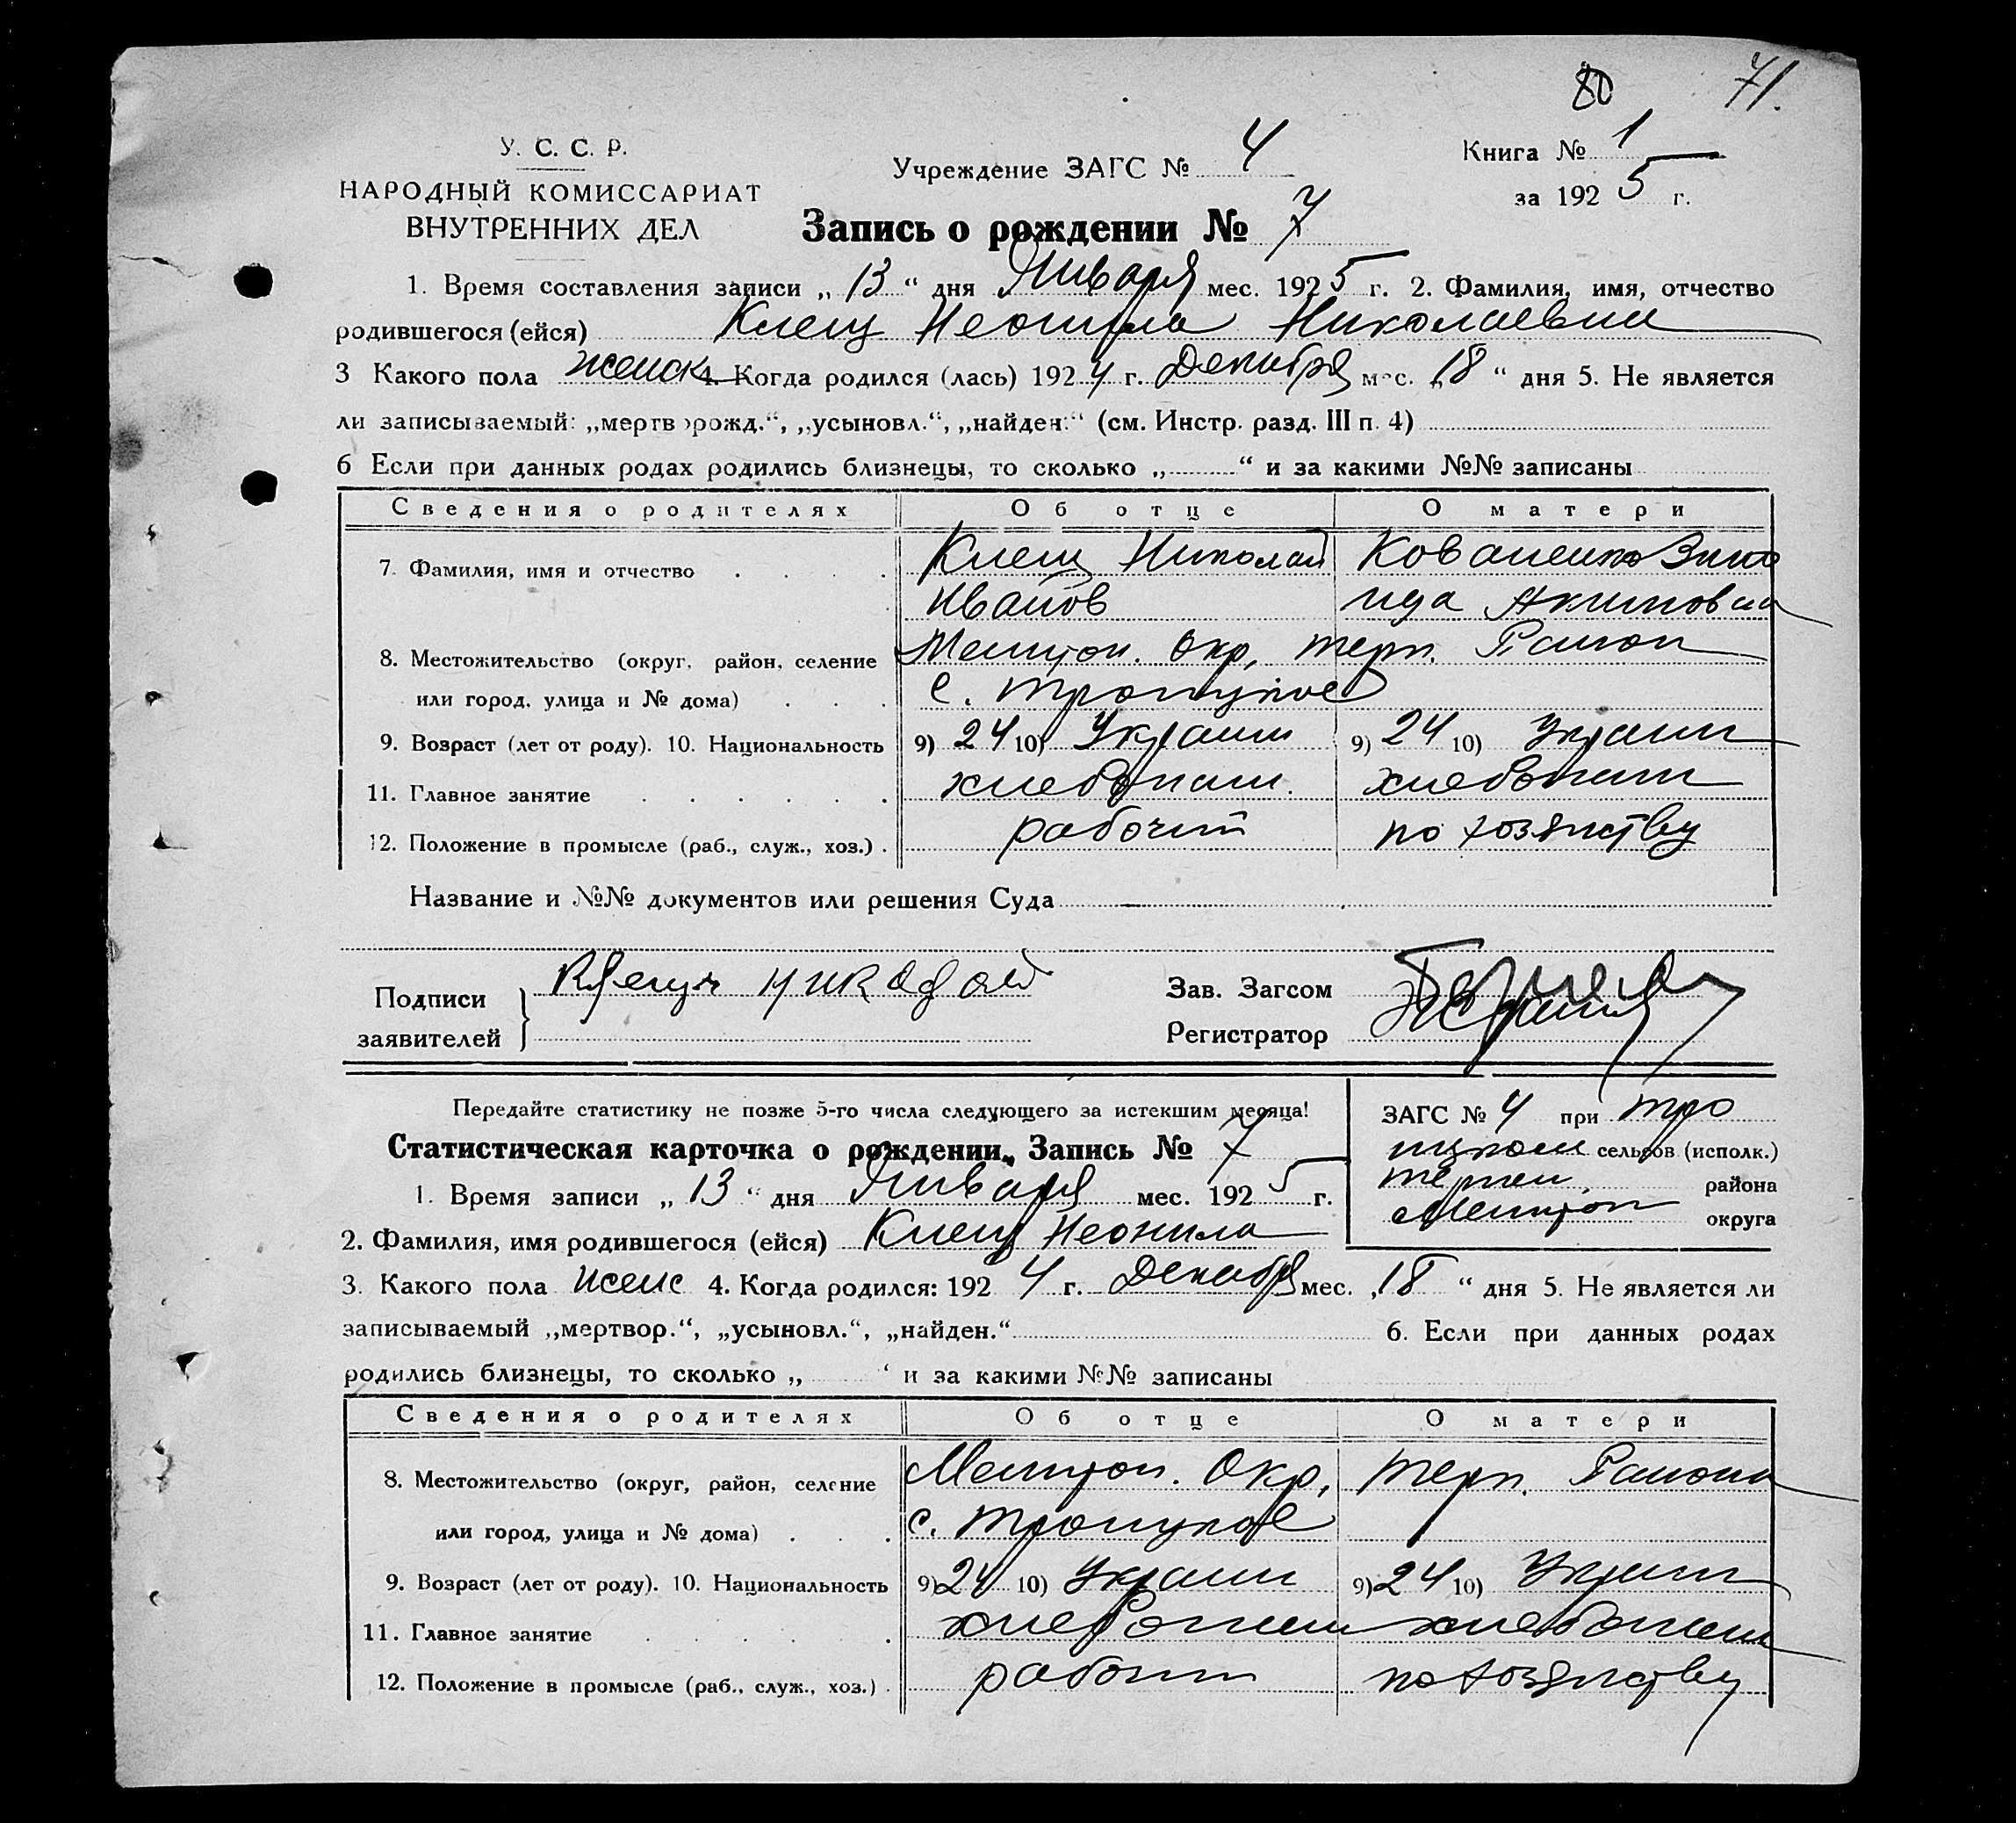 80 71.
У. С. С. Р.
НАРОДНЫЙ КОМИССАРИАТ
ВНУТРЕННИХ ДЕЛ
Учреждение ЗАГС № 4
Книга № 1
за 1925 г.
Запись о рождении № 7
1. Время составления записи „ 13 “ дня Января мес. 1925 г. 2. Фамилия, имя, отчество
родившегося (ейся) Клещ Неонила Николаевна
3 Какого пола женск 4. Когда родился (лась) 1924 г. Декабря мес. „18 “ дня 5. Не является
ли записываемый: „мертворожд.“, „усыновл.“, „найден.“ (см. Инстр. разд. III п. 4)
6 Если при данных родах родились близнецы, то сколько „ “ и за какими №№ записаны
Сведения о родителях Об отце О матери
7. Фамилия, имя и отчество Клещ Николай Коваленко Зина
Иванов ида Акимовна
8. Местожительство (округ, район, селение Мелитоп. Окр, Терп. Район
или город, улица и № дома) с. Троицкое
9. Возраст (лет от роду). 10. Национальность 9) 24 10) Украин 9) 24 10) Украин
11. Главное занятие хлебопаш. хлебопаш
12. Положение в промысле (раб., служ., хоз.) рабочий по хозяйству
Название и №№ документов или решения Суда
Подписи
заявителей
Клещ Николай
Зав. Загсом
Регистратор
Передайте статистику не позже 5-го числа следующего за истекшим месяца!
Статистическая карточка о рождении, Запись № 7
ЗАГС № 4 при Тро
ицком сельсов (исполк.)
Терпен. района
Мелитоп округа
1. Время записи „ 13 “ дня Января мес. 1925 г.
2. Фамилия, имя родившегося (ейся) Клещ Неонила
3. Какого пола женс 4. Когда родился: 1924 г. Декабря мес. „18 “ дня 5. Не является ли
записываемый „мертвор.“, „усыновл.“, „найден.“ 6. Если при данных родах
родились близнецы, то сколько „ “ и за какими №№ записаны
Сведения о родителях Об отце О матери
8. Местожительство (округ, район, селение Мелитоп. Окр, Терп. Района
или город, улица и № дома) с. Троицкое
9. Возраст (лет от роду). 10. Национальность 9) 24 10) Украин 9) 24 10) Украин
11. Главное занятие хлебопаш хлебопаш
12. Положение в промысле (раб., служ., хоз.) рабочий по хозяйству